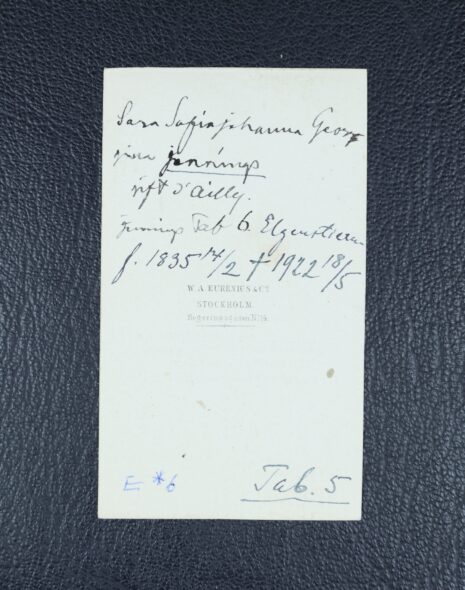 Sara Sofia Johanna Geor
gina Jennings
gift d'Ailly.
Jennings Tab 6. Elgenstierna
f. 1835 14/2 † 1922 18/5
W. A. EURENIUS & Ct
STOCKHOLM.
E *6
Tab. 5